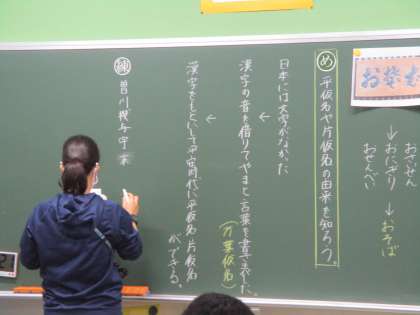 おせち
おぞうせん
おにぎり→おそば
おせんべい
め 平仮名や片仮名の由来を知ろう。
日本には文字がなかった
↓
漢字の音を借りてやまと言葉を書き表した。
(万葉仮名)
↓
漢字をもとにして平安時代に平仮名片仮名ができる。
練 曽川機与宇末